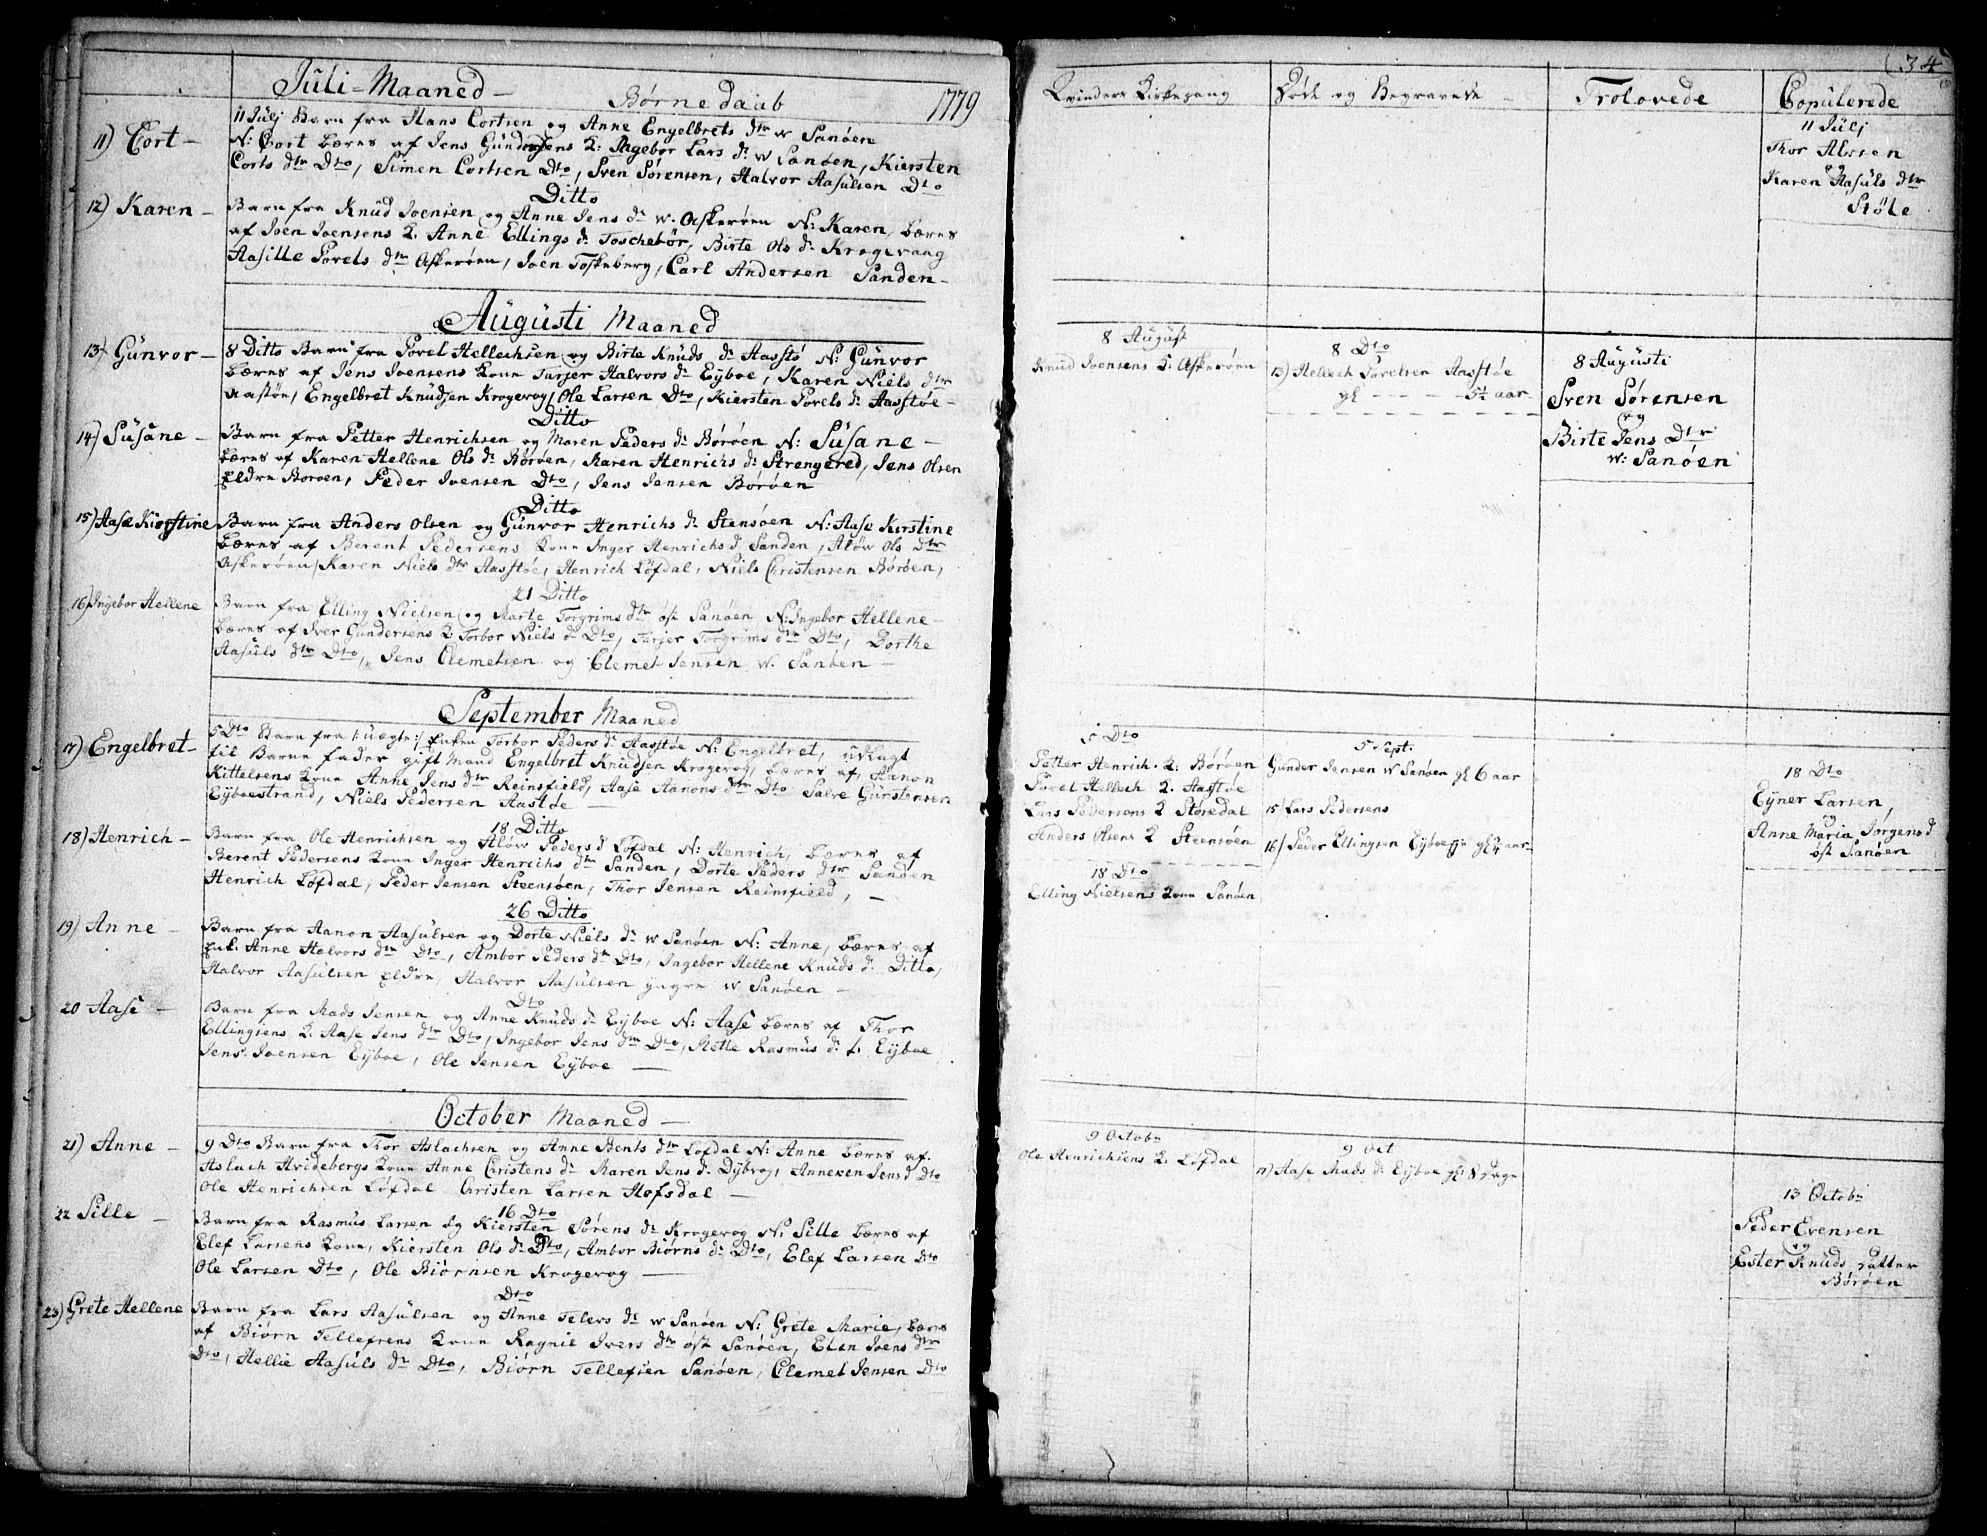 Juli - Maaned -
Børne daab 1779
11) Cort -
11 Julj Barn fra Hans Cortsen og Anne Engelbrets dtr w Sanøen
N: Cort bæres af Jens Gundersens K: Ingebor Lars d: w Sanøen, Kiersten
Corts dtr Dto, Simen Cortsen Dto, Sven Sørensen, Halvor Aasulsen Dto
Ditto
12) Karen -
Barn fra Knud Joensen og Anne Jens d: w. Askerøen N: Karen, bæres
af Joen Joensens K. Anne Ellings d: Toschebør, Birte Ols d: Krogevaag
Aasille Povels dtr Askerøen, Joen Toskeberg, Carl Andersen Sanden -
Augusti Maaned
13) Gunvor -
8 Ditto Barn fra Povel Hellechsen og Birte Knuds d: Aasstø N: Gunvor
bæres af Jens Joensens Kone Tarjer Halvors d: Eijboe, Karen Niels dtr
Aastøe, Engelbret Knudsen Krogevog, Ole Larsen Dto, Kiersten Povels d: Aasstøe -
Ditto
14) Susane -
Barn fra Petter Henrichsen og Maren Peders d: Børøen N: Susane -
bæres af Karen Hellene Ols d: Børøen, Karen Henrichs d: Strengered, Jens Olsen
Eldre Børøen, Peder Joensen Dto, Jens Jensen Børøen
Ditto
15) Aase Kierstine
Barn fra Anders Olsen og Gunvor Henrichs d: Stensøen N: Aase Kirstine
bæres af Berent Pedersens Kone Inger Henrichs d Sanden, Aløw Ols dtr
Askerøen, Karen Niels dtr Aasstøe, Henrich Løfdal, Niels Christensen Børøen,
21 Ditto
16) Ingebor Hellene
Barn fra Elling Nielsen og Marte Torgrims dtr øst Sanøen N: Ingebor Hellene
bæres af Iver Gundersens K Torbor Niels d: Dto, Tarjer Torgrims dtr Dto, Dorthe
Aasuls dtr Dto, Jens Clemetsen og Clemet Jensen w. Sanøen -
September Maaned
17) Engelbret -
5 Dto Barn fra /: uægte :/ Enken Torbor Peders d: Aasstøe N: Engelbret, udlagt
til Barne fader gift Mand Engelbret Knudsen Krogevog, bæres af, Aanon
Kittelsens Kone Anne Jens dtr Reinsfield, Aase Aanons dtr Dto Salve Gurstensen
Eijboestrand, Niels Pedersen Aastøe -
18 Ditto
18) Henrich -
Barn fra Ole Henrichsen og Aløw Peders d Løfdal N: Henrich, bæres af
Berent Pedersens Kone Inger Henrichs dtr Sanden, Dorte Peders dtr Sanden
Henrich Løfdal, Peder Jensen Steensøen, Thor Jensen Reinsfield, -
26 Ditto
19) Anne -
Barn fra Aanon Aasulsen og Dorte Niels d: w Sanøen N: Anne, bæres af
Enk: Anne Halvors dtr Dto, Ambor Peders dtr Dto, Ingebor Hellene Knuds d: Ditto,
Halvor Aasulsen Eldre, Halvor Aasulsen yngre w Sanøen -
Dto
20 Aase -
Barn fra Mads Jensen og Anne Knuds d: Eijboe N: Aase bæres af Thor
Ellingsens K. Aase Jens dtr Dto, Ingebor Jens dtr Dto, Mette Rasmus d: f. Eijboe
Jens Joensen Eijboe, Ole Jensen Eijboe -
October Maaned -
21) Anne -
9 Dto Barn fra Thor Aslachsen og Anne Bents dtr Løfdal N: Anne bæres af
Aslach Hvidebergs Kone Anne Christens d: Maren Jens d: Dybvog, Annexen Jens d Dto
Ole Henrichsen Løfdal Christen Larsen Hofsdal -
16 Dto
22 Sille -
Barn fra Rasmus Larsen og Kiersten Sørens d: Krogevog N: Sille bæres af
Elef Larsens Kone, Kiersten Ols d: Dto, Ambor Biørns d: Dto, Elef Larsen Dto
Ole Larsen Dto, Ole Biørnsen Krogevog -
Dto
23) Grete Hellene
Barn fra Lars Aasulsen og Anne Televs d: w Sanøen N: Grete Marie, bæres
af Biørn Tellefsens Kone Ragnil Ivers dtr øst Sanøen, Elen Joens dtr
Dto, Hellie Aasuls d: Dto, Biørn Tellefsen Sanøen, Clemet Jensen Dto
34
Qvinders Kirkegang
Døde og Begravede -
Trolovede
Copulerede
11 Julj
Thor Alvsen
og
Karen Aasuls dtr
Støle
8 August
Knud Joensens K: Askerøen
8 Dto
13) Hellech Povelsen Aasstøe
gl - - - - 5½ aar
8 Augusti
Sven Sørensen
og
Birte Jens Dtr
w: Sanøen
5 Dto
Petter Henrich. K: Børøen
Povel Hellech K. Aasstøe
Lars Pedersens K Støredal
Anders Olsens K Steensøen
18 Dto
Elling Nielsens Kone Sanøen
5 Sept:
Gunder Jensen w Sanøen gl 6 aar
15) Lars Pedersens
16) Peder Ellingsen Eijboe
18 Dto
Eyner Larsen,
og
Anne Maria Jørgens d
øst Sanøen
9 Octobr
Ole Henrichsens K. Løfdal
9 Oct
17) Aase Mads d: Eijboe gl: 8 Dage
13 Octobr
Peder Evensen
og
Ester Knuds Datter
Børøen